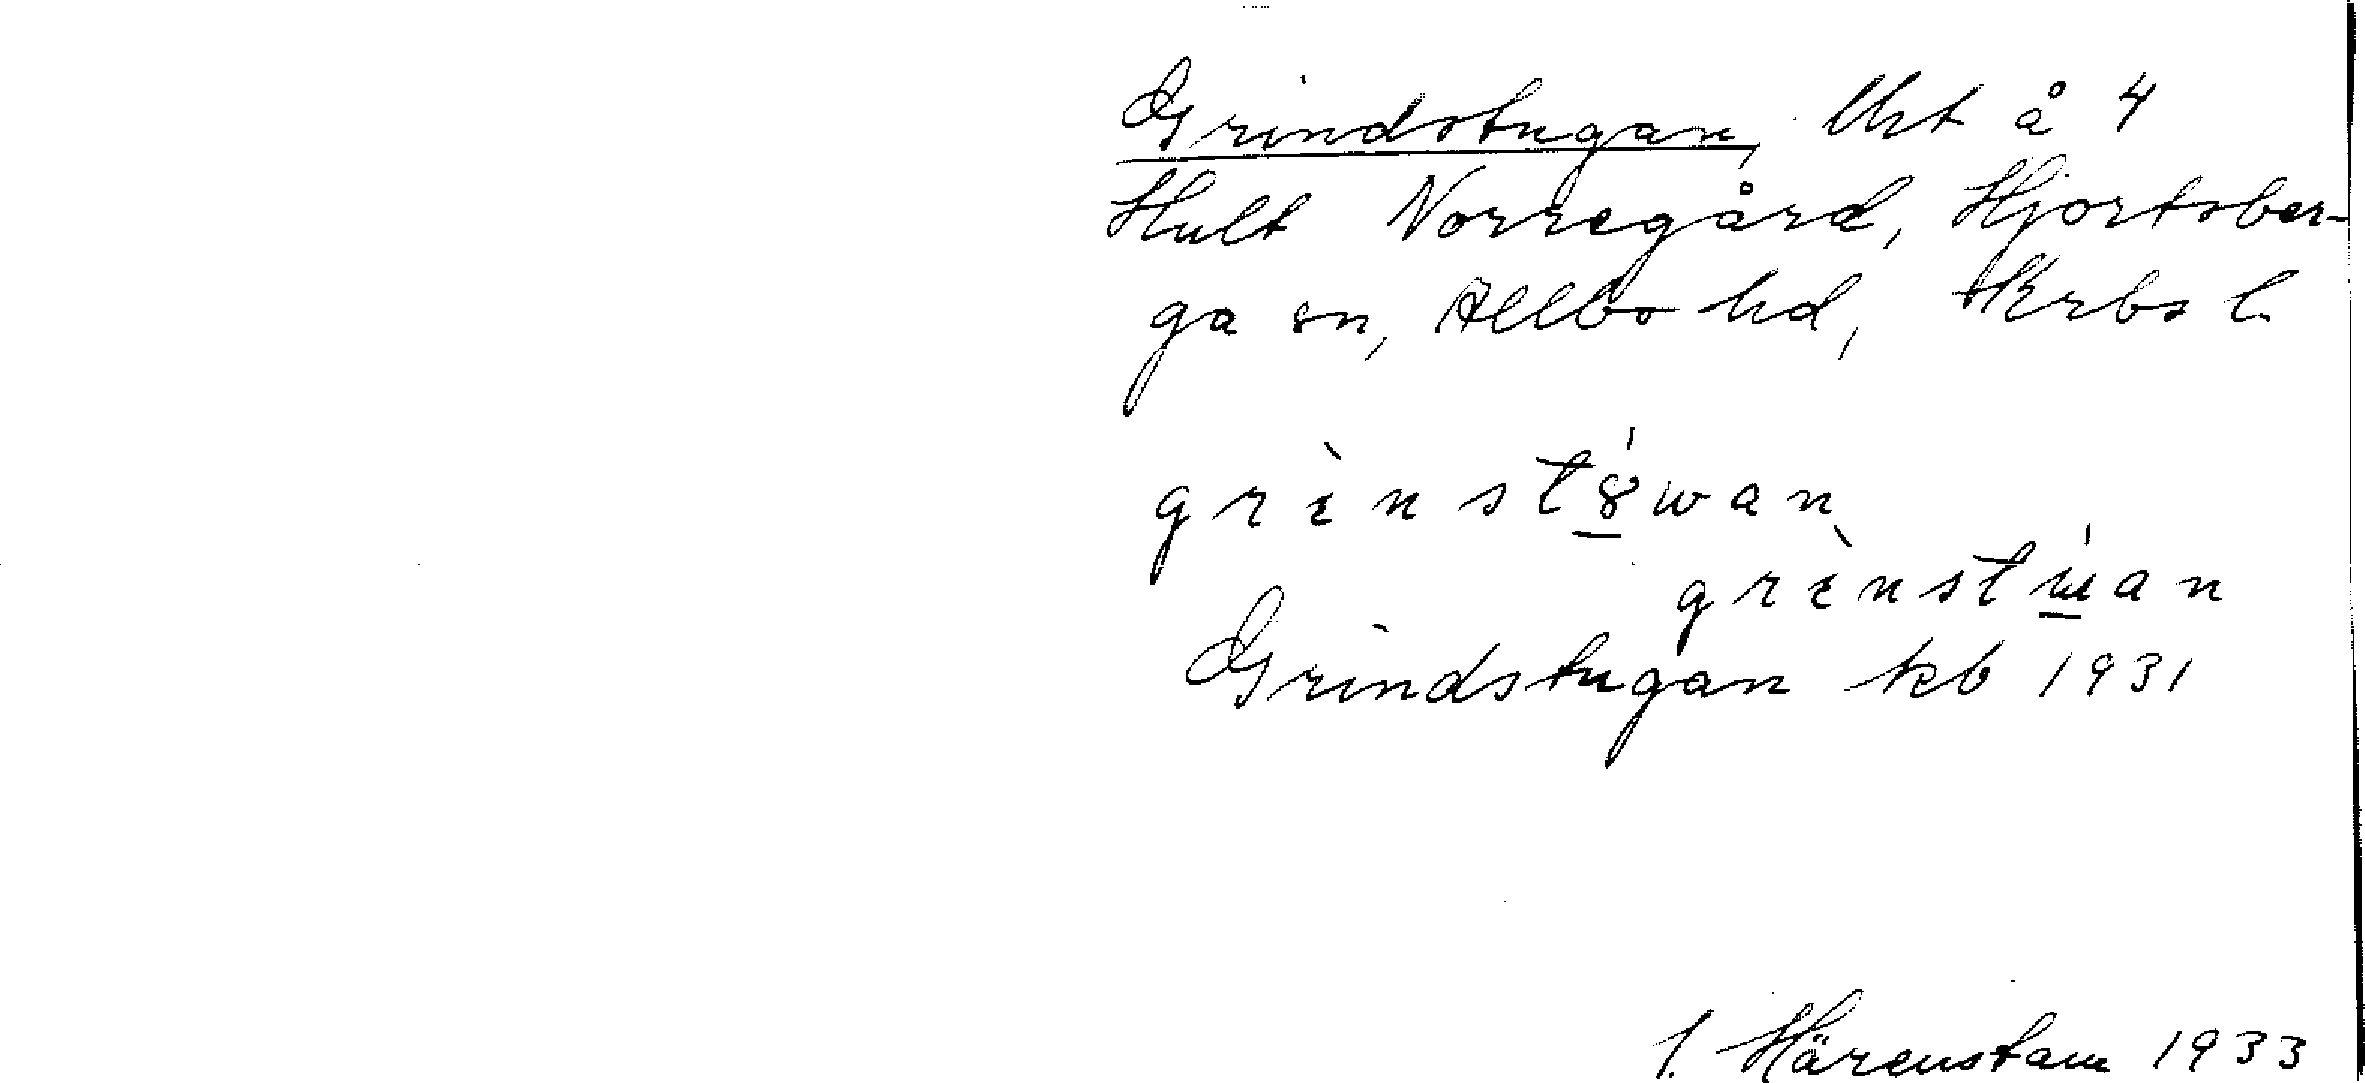 Grindstugan, lht å 4
Hult Norregård, Hjortsber-
ga sn, Allbo hd, Krbs l.
grènst8́wan
grènstẃan
Grindstugan kb 1931
I. Härenstam 1933